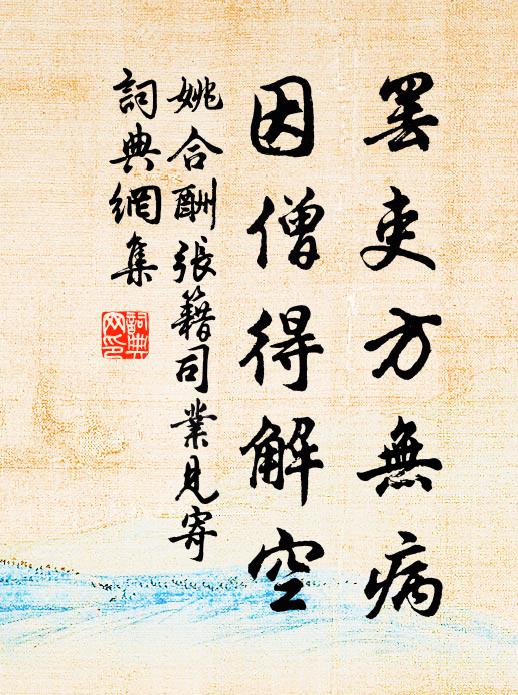 罷吏方無病
因僧得解空
姚合酬張籍司業見寄
詞典網集
詞典網印